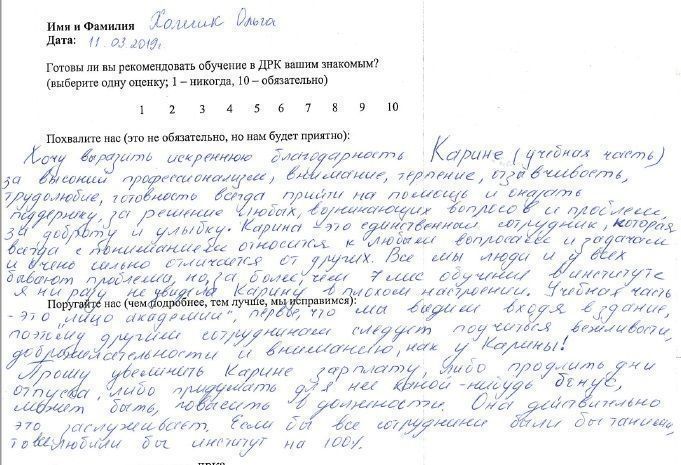 Имя и Фамилия Холшик Ольга
Дата: 11.03.2019г.
Готовы ли вы рекомендовать обучение в ДРК вашим знакомым?
(выберите одну оценку; 1 – никогда, 10 – обязательно)
1 2 3 4 5 6 7 8 9 10
Похвалите нас (это не обязательно, но нам будет приятно):
Хочу выразить искреннюю благодарность Карине (учебная часть)
за высокий профессионализм, внимание, терпение, отзывчивость,
трудолюбие, готовность всегда прийти на помощь и оказать
поддержку, за решение любых, возникающих вопросов и проблем,
за доброту и улыбку. Карина - это единственный сотрудник, которая
всегда с пониманием относится к любым вопросам и задачам
и очень сильно отличается от других. Все мы люди и у всех
бывают проблемы, но, за более, чем 7 мес обучения в институте
я ни разу не увидела Карину в плохом настроении. Учебная часть
Поругайте нас (чем подробнее, тем лучше, мы исправимся):
- это "лицо академии", первое, что мы видим входя в здание,
поэтому другим сотрудникам следует поучиться вежливости,
доброжелательности и вниманию, как у Карины!
Прошу увеличить Карине зарплату, либо продлить дни
отпуска, либо придумать для неё какой-нибудь бонус,
может быть, повысить в должности. Она действительно
это заслуживает. Если бы все сотрудники были бы такими,
то все любили бы институт на 100%.